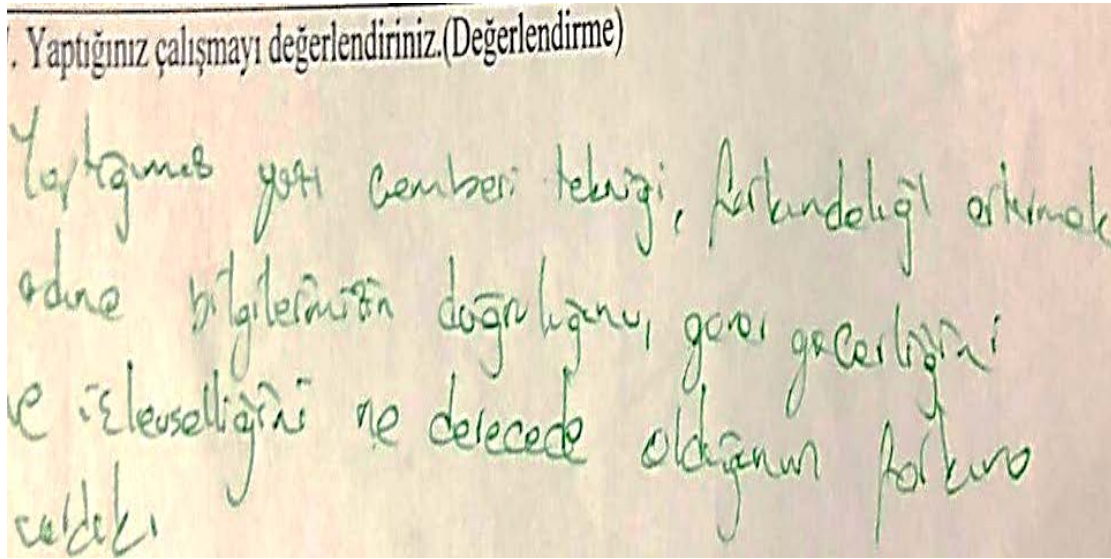 . Yaptığınız çalışmayı değerlendiriniz.(Değerlendirme)
Yaptığımız yazı çemberi tekniği, farkındalığı artırmak
adına bilgilerimizin doğruluğunu, geçerliğini
ve işlevselliğini ne derecede olduğunun farkına